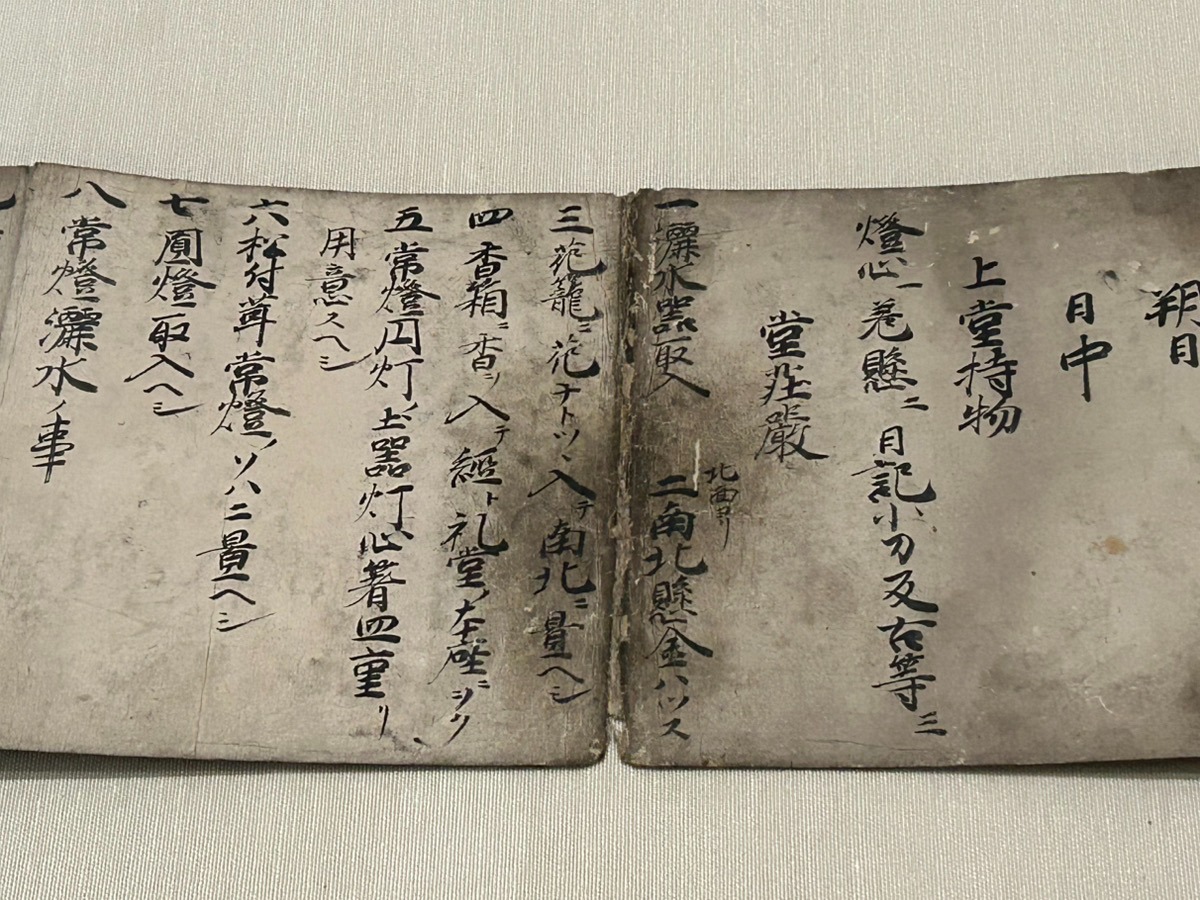 朔日
日中
上堂持物
燈心一巻懸ニ日記小刀及古等ニ
堂荘厳
一灑水器取入 二南北懸金ハツス
北西ヨリ
三花籠ニ花ナトツヽ入テ南北ニ置ヘシ
四香箱ニ香ヲ入テ經ト礼堂ノ本座ニヲク
五常燈円灯ノ土器灯心著四重リ
用意スヘシ
六松付 常燈ノソハニ置ヘシ
七圓燈取入ヘシ
八常燈灑水ノ事